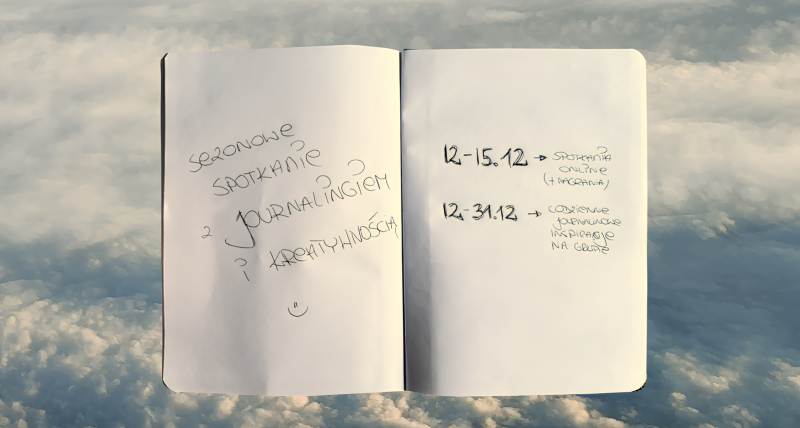 SEZONOWE
SPOTKANIE
Z JOURNALINGIEM
i KREATYWNOŚCIĄ
12-15.12 → SPOTKANIA
ONLINE
(+ NAGRANIA)
12-31.12 → CODZIENNE
JOURNALINOWE
INSPIRACJE
NA GRUPIE